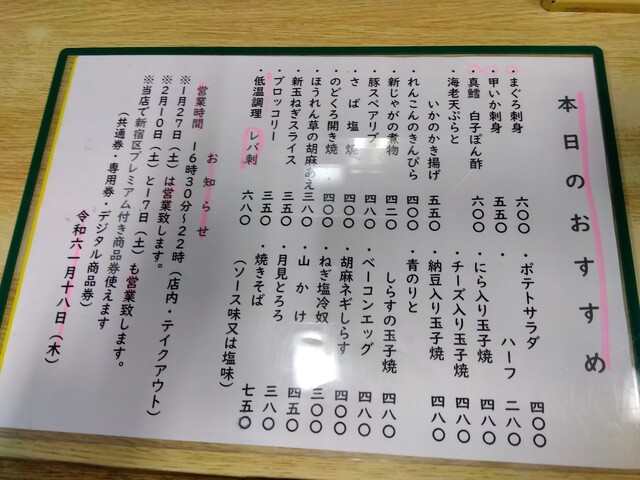 本日のおすすめ
・まぐろ刺身 六〇〇
・甲いか刺身 五五〇
・真鱈 白子ぽん酢 六〇〇
・海老天ぷらと
いかのかき揚げ 五五〇
・れんこんのきんぴら 四〇〇
・新じゃがの煮物 四二〇
・豚スペアリブ 四八〇
・さば塩焼 四〇〇
・のどくろ開き焼 四〇〇
・ほうれん草の胡麻あえ 三八〇
・新玉ねぎスライス 三五〇
・ブロッコリー 三五〇
・低温調理 レバ刺 六八〇
・ポテトサラダ 四〇〇
・ハーフ 二八〇
・にら入り玉子焼 四八〇
・チーズ入り玉子焼 四八〇
・納豆入り玉子焼 四八〇
・青のりと
しらすの玉子焼 四八〇
・ベーコンエッグ 四八〇
・胡麻ネギしらす 四〇〇
・ねぎ塩冷奴 三〇〇
・山かけ 四五〇
・月見とろろ 三八〇
・焼きそば
(ソース味又は塩味) 七五〇
お知らせ
営業時間 16時30分〜22時(店内・テイクアウト)
※1月27日(土)は営業致します。
※2月10日(土)と17日(土)も営業致します。
※当店で新宿区プレミアム付き商品券使えます
(共通券・専用券・デジタル商品券)
令和六一月十八日(木)